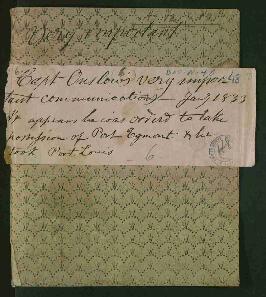 Very important
Capt Onslow's very impor
tant communications — Jany 1833
It appears he was ordered to take
possession of Port Egmont & he
took Port Louis